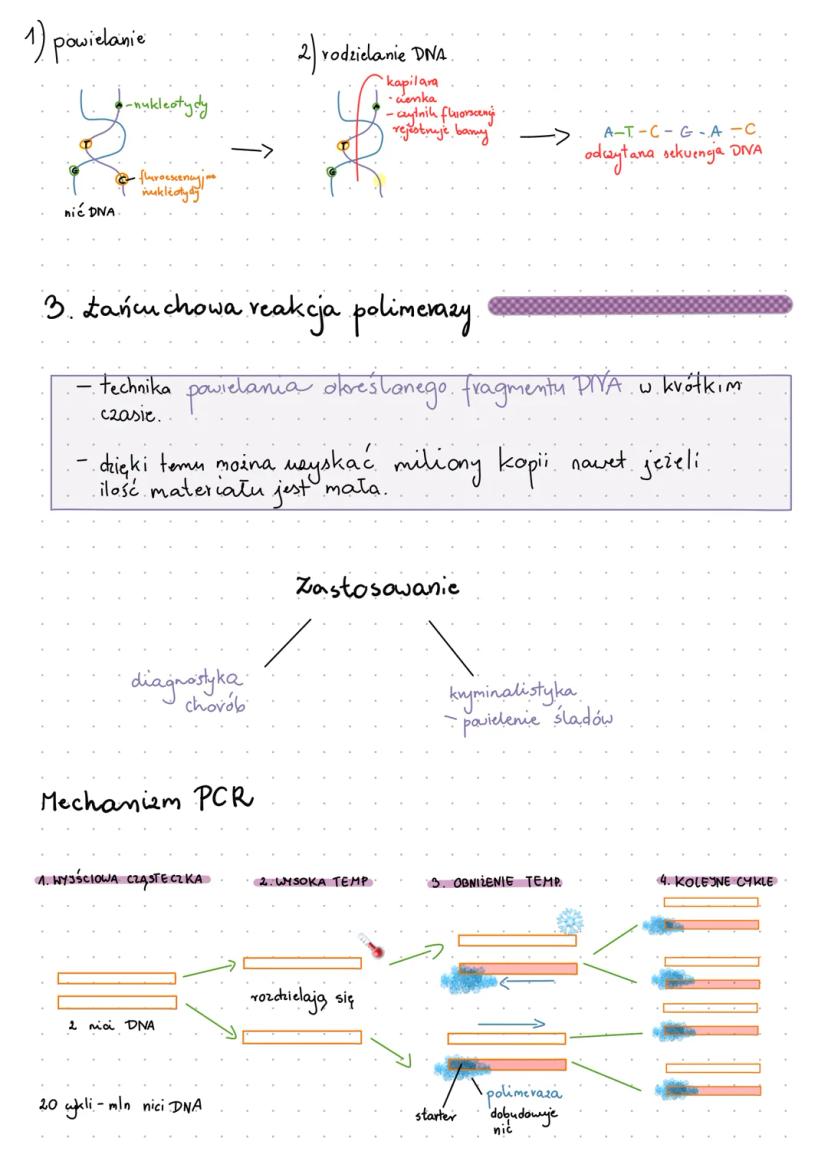 1) powielanie
2) rodzielanie DNA
kapilara
- cienka
- czytnik fluorscencji
rejestruje barwy
- nukleotydy
A
T
G
C
fluroescenzyjne
nukleotydy
nić DNA
A
T
G
A-T-C-G-A-C
odczytana sekwencja DNA
3. Łańcuchowa reakcja polimerazy
- technika powielania określanego fragmentu DNA w krótkim
czasie.
- dzięki temu można uzyskać miliony kopii nawet jeżeli
ilość materiału jest mała.
Zastosowanie
diagnostyka
chorób
kryminalistyka
- powielenie śladów
Mechanizm PCR
1. WYJŚCIOWA CZĄSTECZKA
2. WYSOKA TEMP
3. OBNIŻENIE TEMP.
4. KOLEJNE CYKLE
2 nici DNA
rozdzielają się
20 cykli - mln nici DNA
starter
polimeraza
dobudowuje
nić